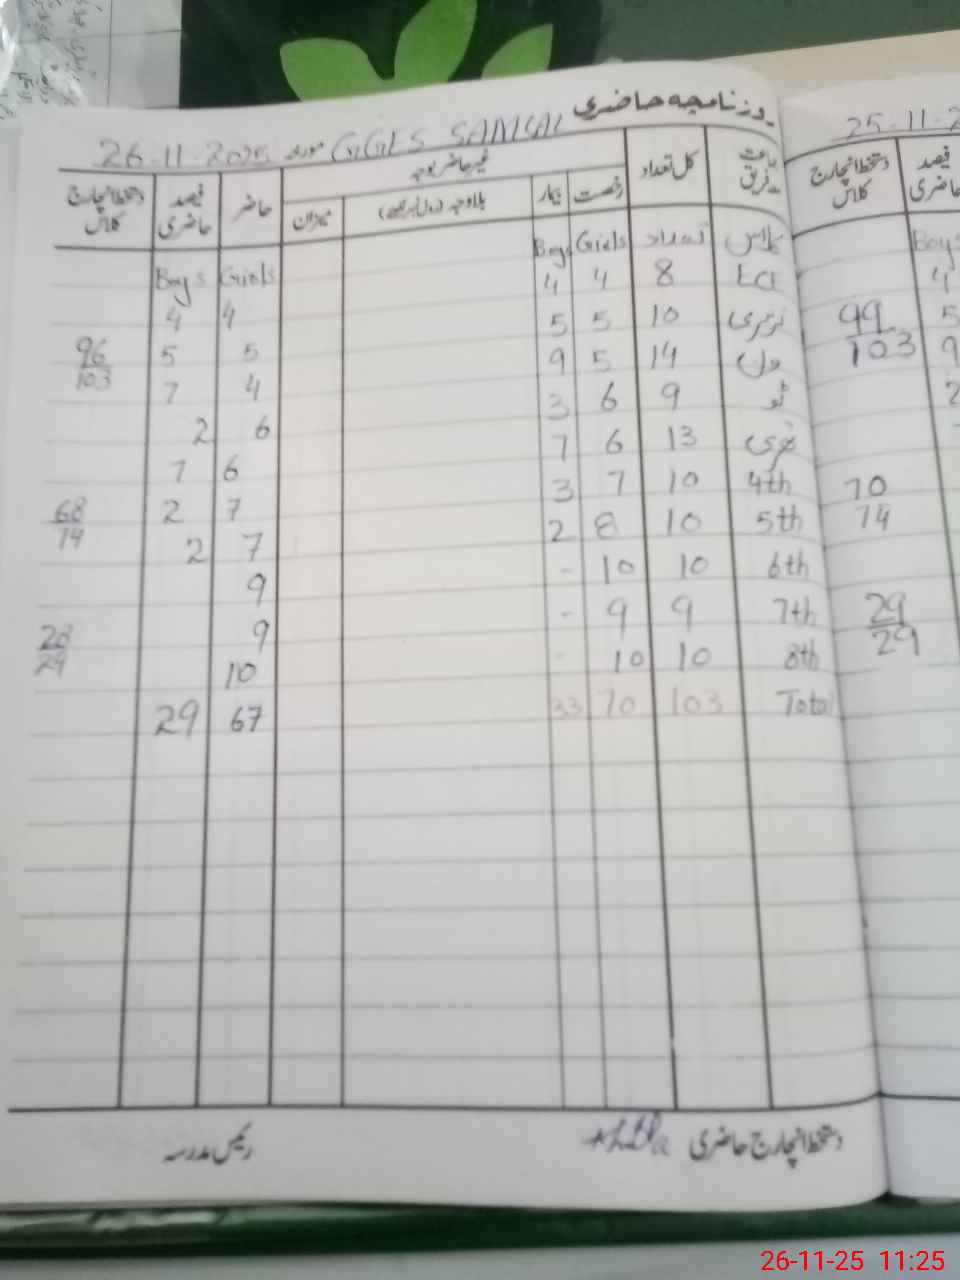 روزنامچہ حاضری
GGES SANGAL مورخہ 26-11-2025
جماعت فریق کل تعداد غیر حاضر بوجہ حاضر فیصد حاضری دستخط انچارج کلاس
رخصت بیمار بلاوجہ (رول نمبر دیجئے) میزان
کلاس تعداد Girls Boys Girls Boys
ECE 8 4 4 4 4
نرسری 10 5 5 5 5 96/103
ون 14 5 9 4 7
ٹو 9 6 3 6 2
تھری 13 6 7 6 7
4th 10 7 3 7 2 68/74
5th 10 8 2 7 2
6th 10 10 - 9
7th 9 9 - 9 28/29
8th 10 10 - 10
Total 103 70 33 67 29
دستخط انچارج حاضری رئیس مدرسہ
25-11-2
فیصد حاضری دستخط انچارج کلاس
Boys
4
99/103 5
9
2
70
74
29/29
26-11-25 11:25